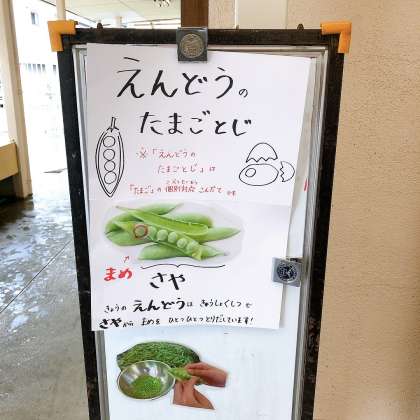 えんどうの
たまごとじ
※「えんどうの
たまごとじ」は
「たまご」の 個別対応 こんだて です
まめ
さや
きょうの えんどうは きゅうしょくしつで
さやから まめを ひとつひとつ とりだしています!